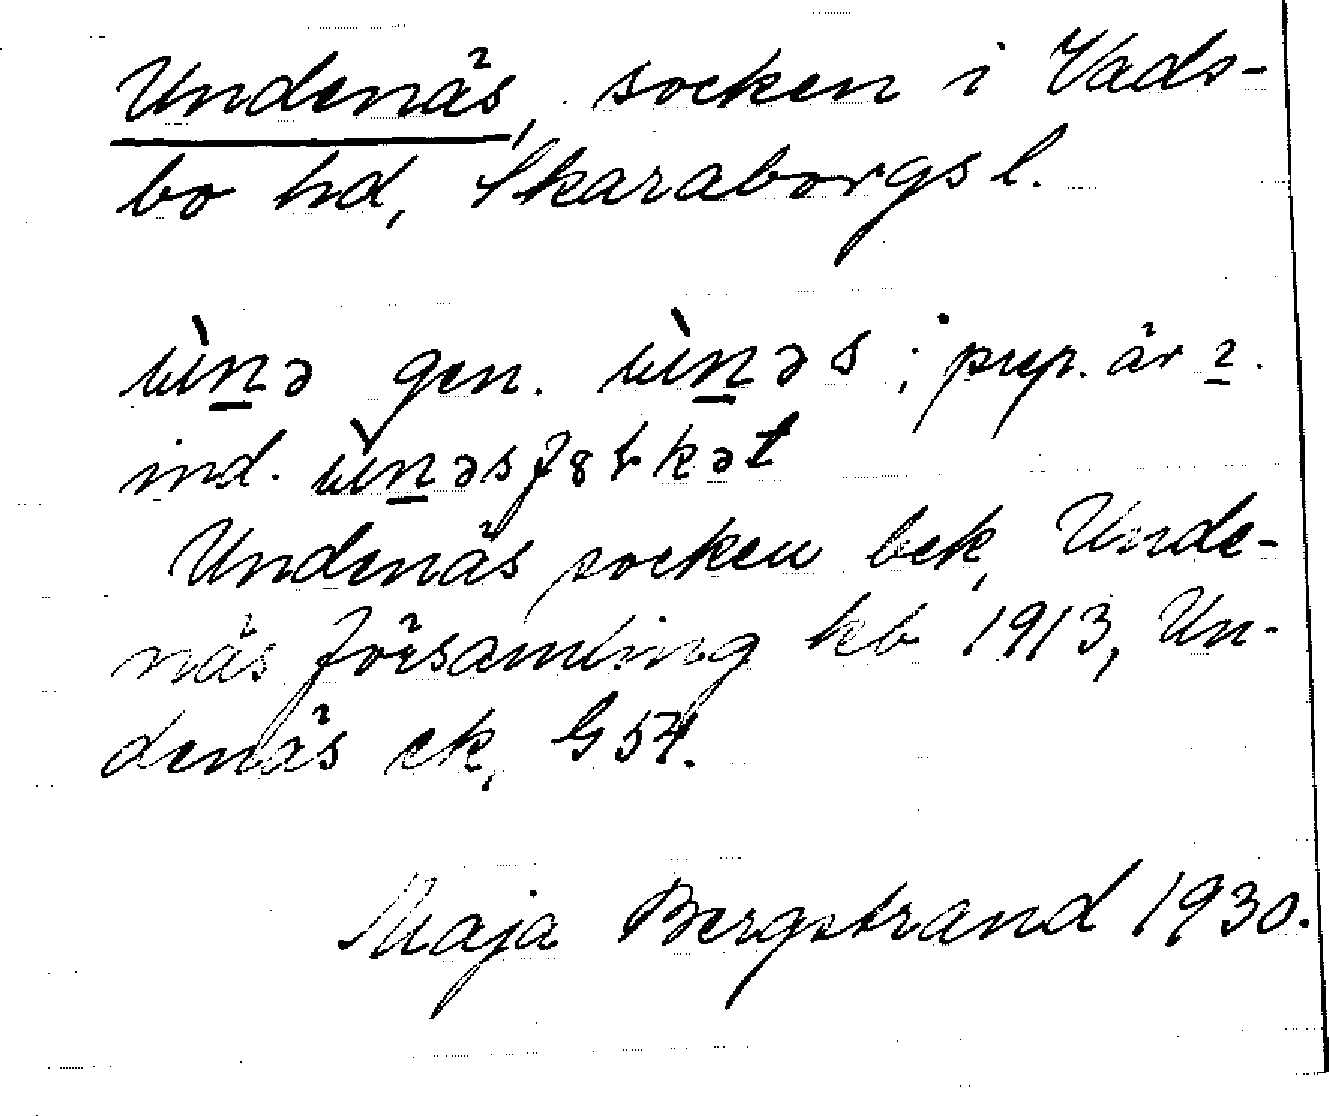 Undenäs, socken i Vads-
bo hd, Skaraborgs l.
ùn̲ə gen. ùn̲əs; prep. är 2.
ind. ùn̲əs
Undenäs socken bek, Unde-
näs församling kb 1913, Un-
denäs ek, G 54.
Maja Bergstrand 1930.